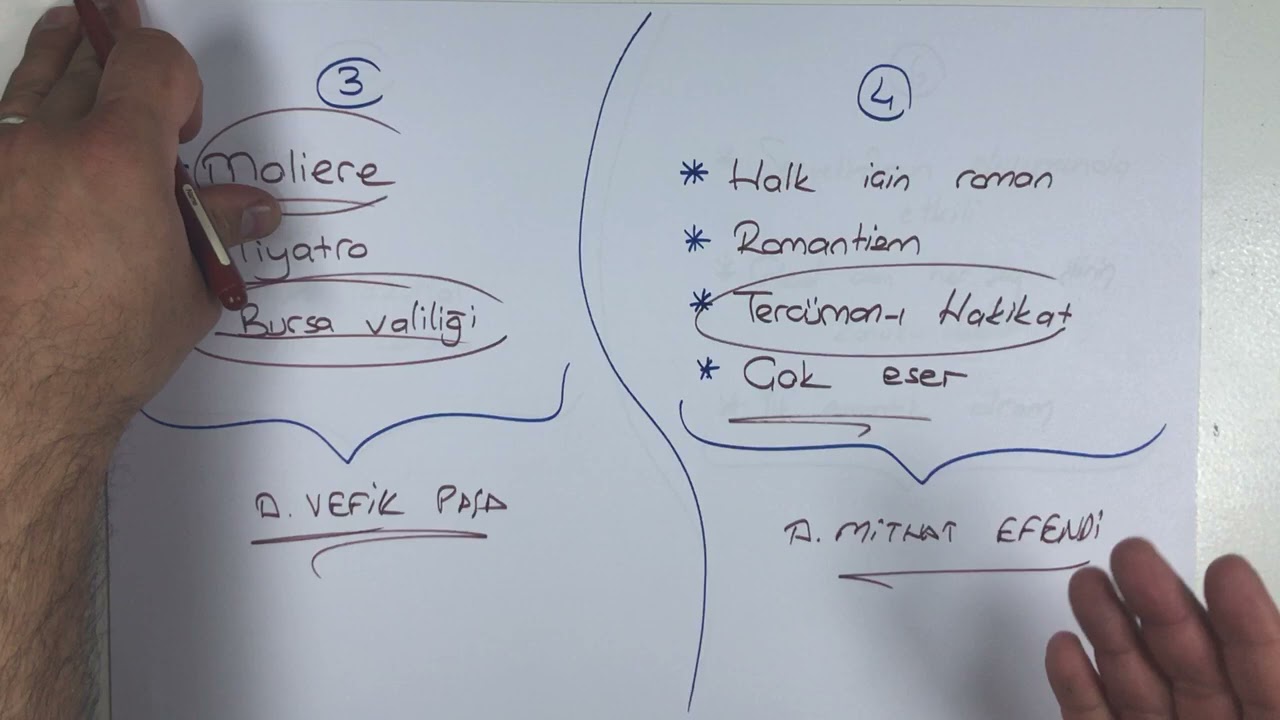 3
Moliere
Tiyatro
Bursa valiliği
A. VEFİK PAŞA
4
* Halk için roman
* Romantizm
* Tercüman-ı Hakikat
* Çok eser
A. MİTHAT EFENDİ